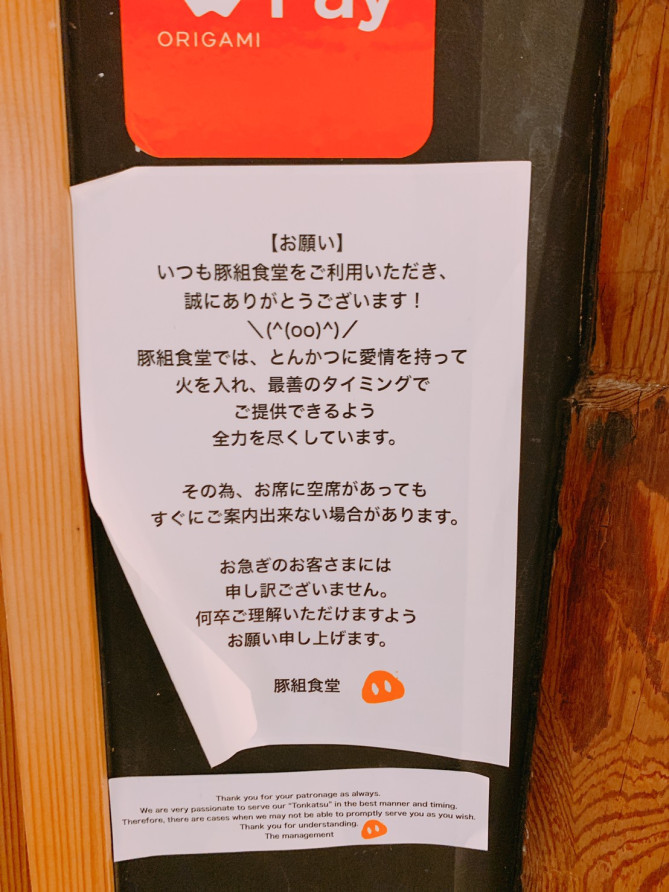 Pay
ORIGAMI
【お願い】
いつも豚組食堂をご利用いただき、
誠にありがとうございます！
＼(^(oo)^)／
豚組食堂では、とんかつに愛情を持って
火を入れ、最善のタイミングで
ご提供できるよう
全力を尽くしています。
その為、お席に空席があっても
すぐにご案内出来ない場合があります。
お急ぎのお客さまには
申し訳ございません。
何卒ご理解いただけますよう
お願い申し上げます。
豚組食堂
Thank you for your patronage as always.
We are very passionate to serve our "Tonkatsu" in the best manner and timing.
Therefore, there are cases when we may not be able to promptly serve you as you wish.
Thank you for understanding.
The management